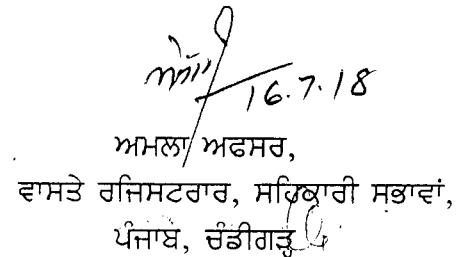 16.7.18
ਅਮਲਾ ਅਫਸਰ,
ਵਾਸਤੇ ਰਜਿਸਟਰਾਰ, ਸਹਿਕਾਰੀ ਸਭਾਵਾਂ,
ਪੰਜਾਬ, ਚੰਡੀਗੜ੍ਹ